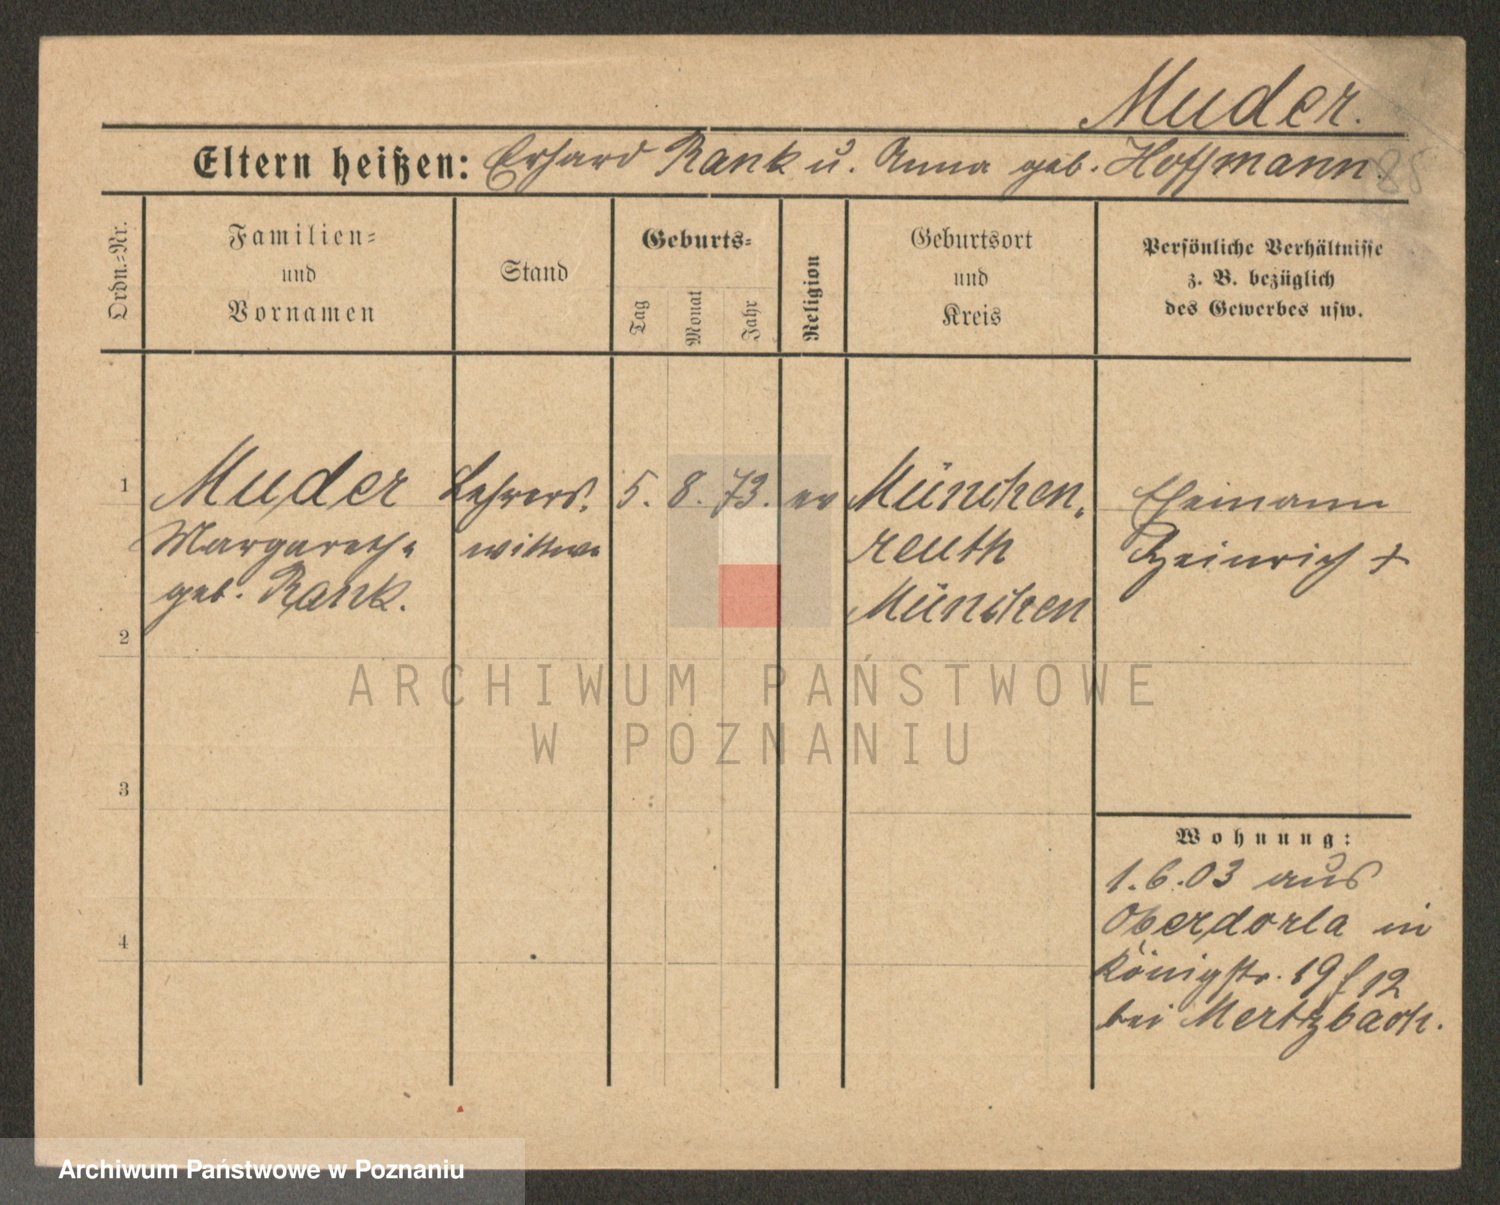 Muder.
Eltern heißen: Erhard Rank u. Anna geb. Hoffmann.
85
Ordn.-Nr.
Familien-
und
Vornamen
Stand
Geburts-
Tag
Monat
Jahr
Religion
Geburtsort
und
Kreis
Persönliche Verhältnisse
z. B. bezüglich
des Gewerbes usw.
1 Muder Lehrers- 5. 8. 73. ev München- Ehemann
Margarethe wittwe reuth Heinrich +
geb. Rank. München
2
ARCHIWUM PAŃSTWOWE
W POZNANIU
3
Wohnung:
1.6.03 aus
Oberdorla in
4
Königstr. 19 f 12
bei Mertzbach.
Archiwum Państwowe w Poznaniu